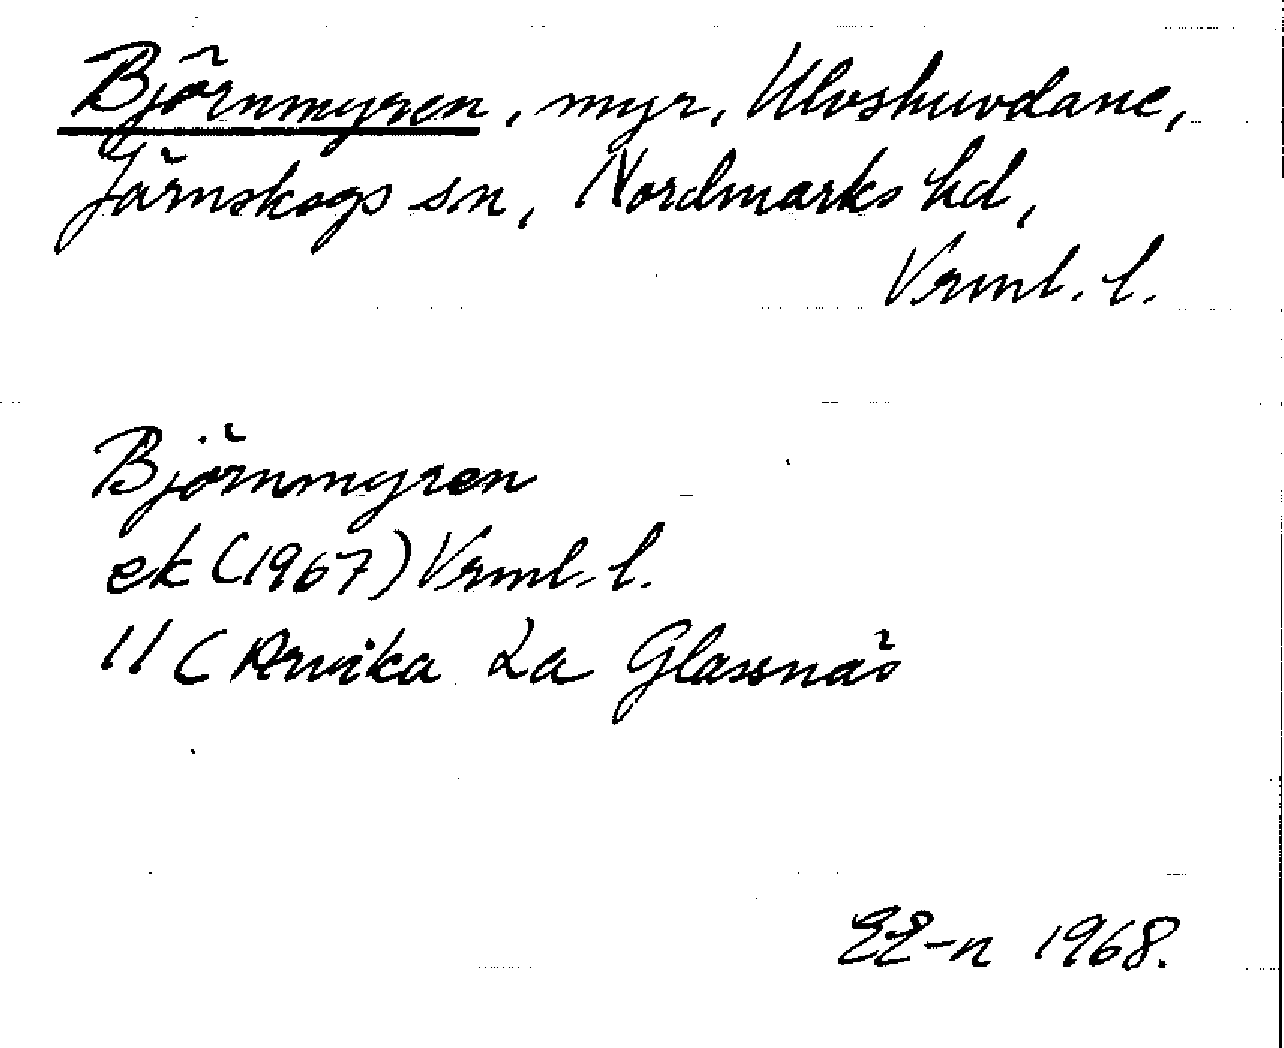 Björnmyren, myr, Ulvshuvdane,
Järnskogs sn, Nordmarks hd,
Vrml. l.
Björnmyren
ek (1967) Vrml. l.
11 C Arvika La Glassnäs
EE-n 1968.